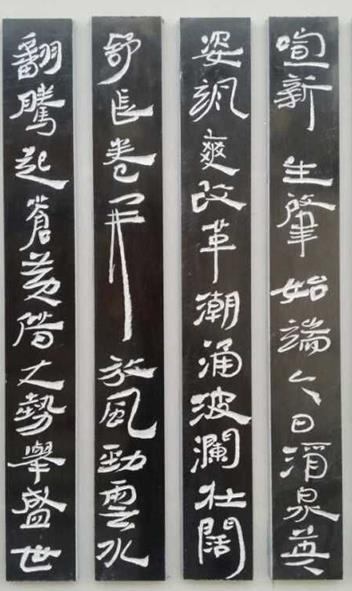 喧新生肇始端今日涓泉英
姿颯爽改革潮涌波瀾壮闊
舒長卷开放風勁雲水
翻騰起蒼黄借大勢舉盛世